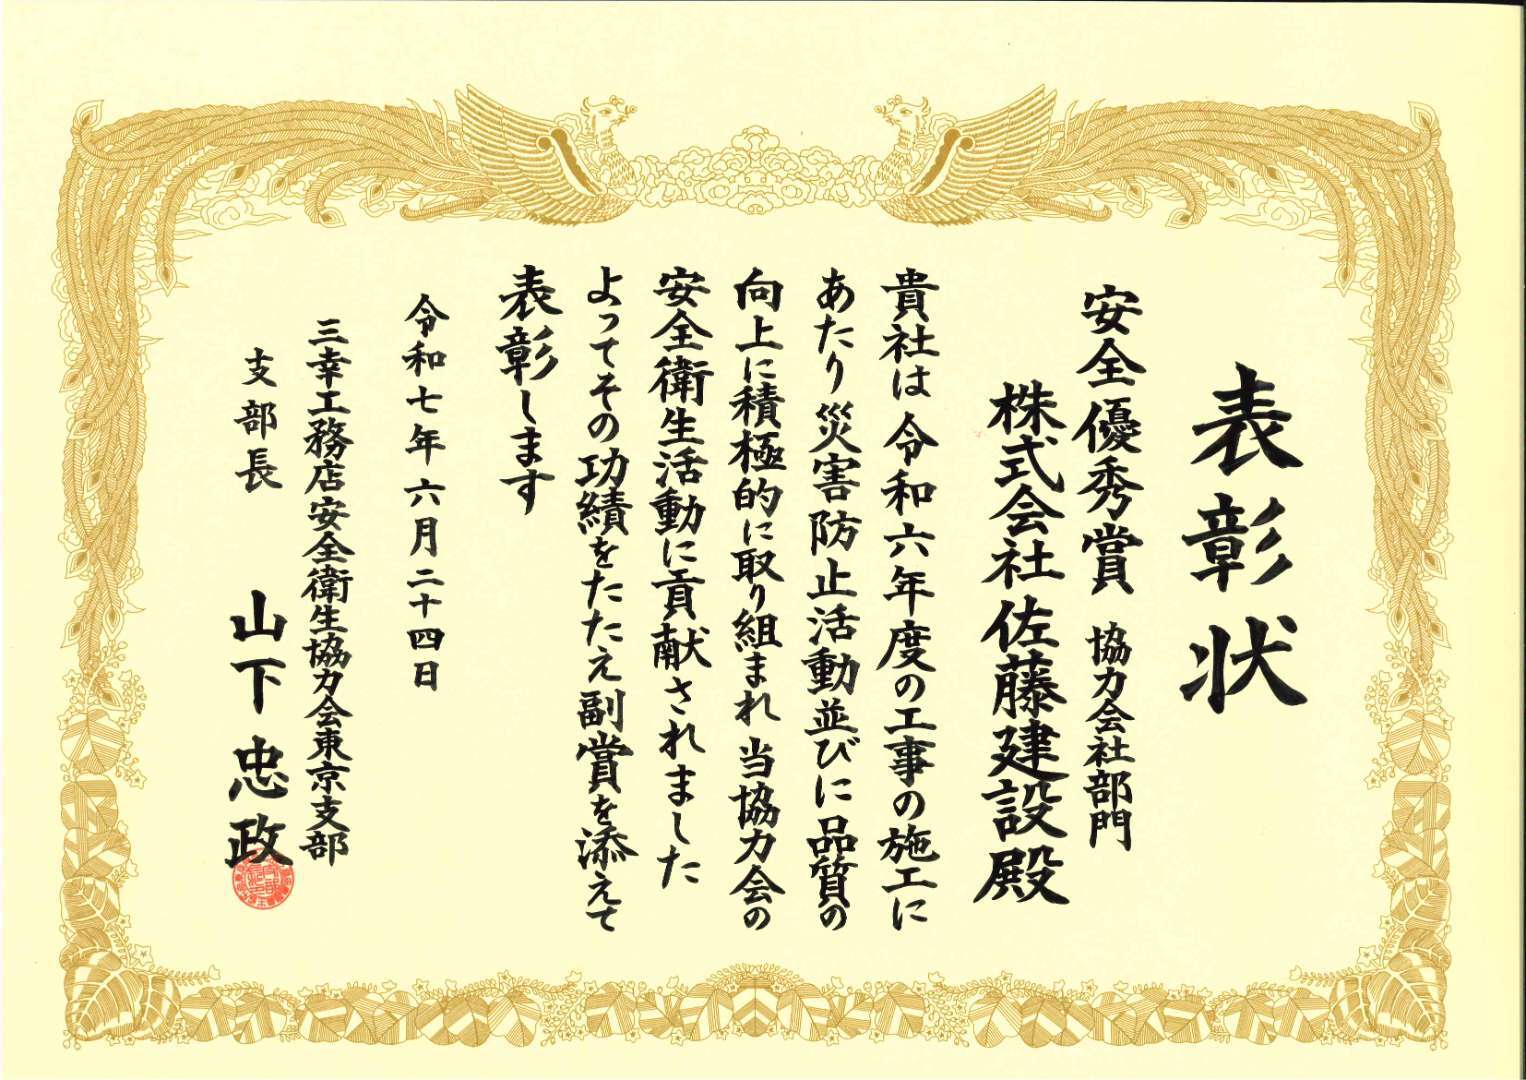 表彰状
安全優秀賞 協力会社部門
株式会社佐藤建設殿
貴社は令和六年度の工事の施工に
あたり災害防止活動並びに品質の
向上に積極的に取り組まれ当協力会の
安全衛生活動に貢献されました
よってその功績をたたえ副賞を添えて
表彰します
令和七年六月二十四日
三幸工務店安全衛生協力会東京支部
支部長 山下忠政